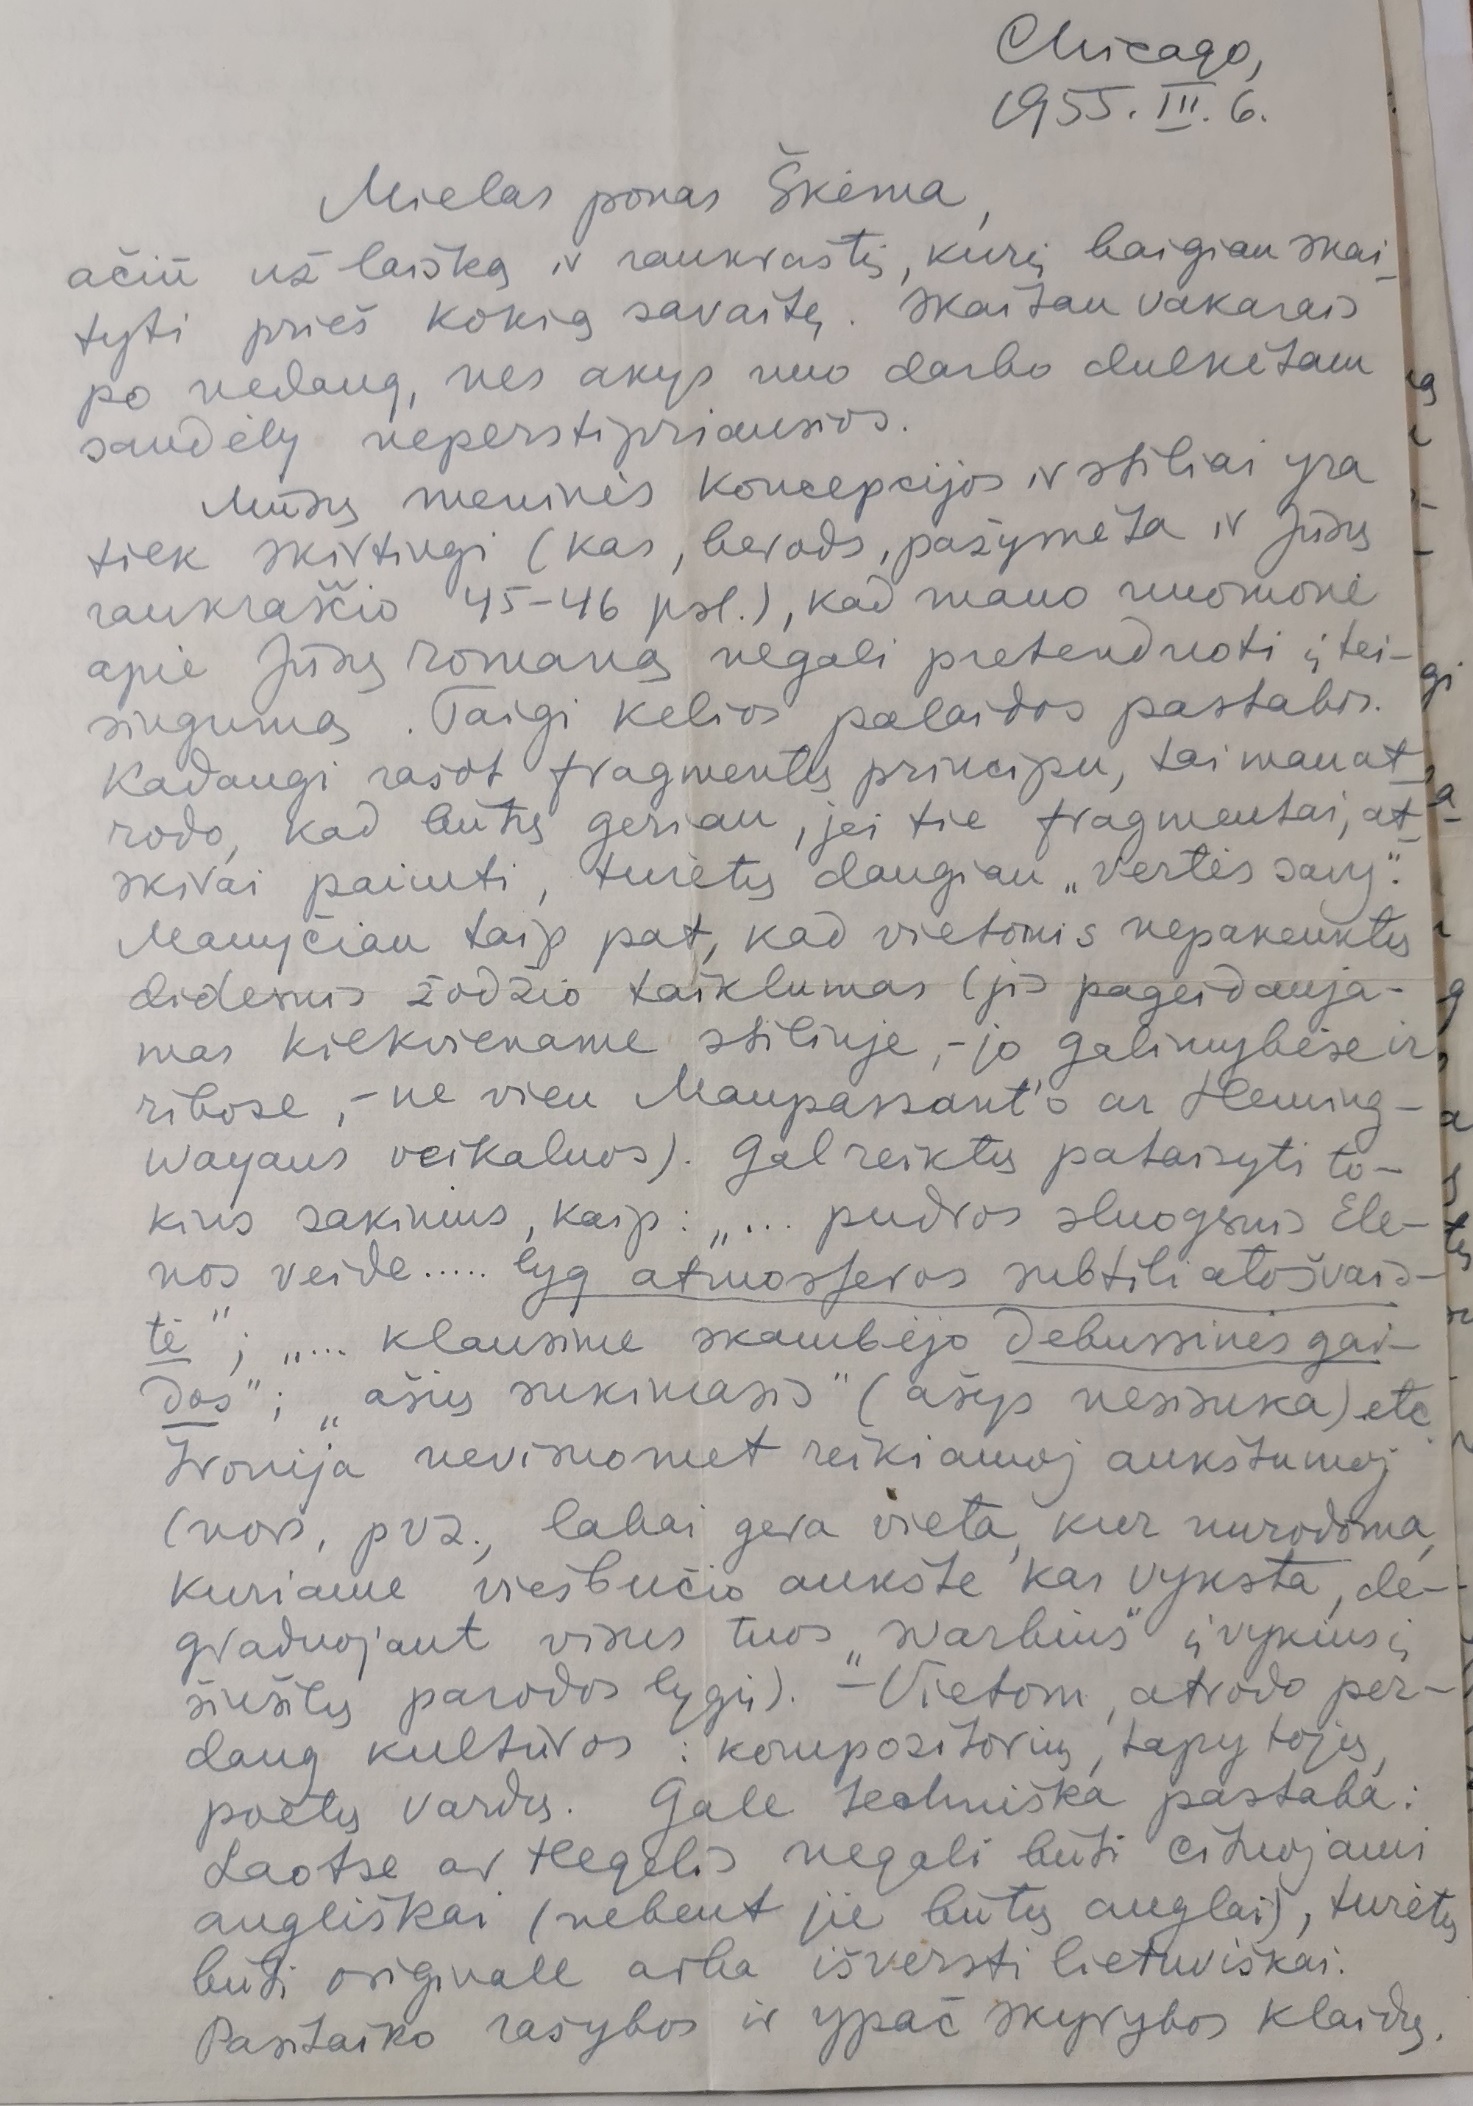 Chicago,
1955. III. 6.
Mielas ponas Škėma,
ačiū už laišką ir rankraštį, kurį baigiau skai-
tyti prieš kokią savaitę. Skaitau vakarais
po nedaug, nes akys nuo darbo dulkėtam
sandėly neperstipriausios.
Mūsų meninės koncepcijos ir stiliai yra
tiek skirtingi (kas, berods, pažymėta ir Jūsų
rankraščio 45-46 psl.), kad mano nuomonė
apie Jūsų romaną negali pretenduoti į tei-
singumą. Taigi kelios palaidos pastabos.
Kadangi rašot fragmentų principu, tai man at-
rodo, kad būtų geriau, jei tie fragmentai, at-
skirai paimti, turėtų daugiau „vertės savy“.
Manyčiau taip pat, kad vietomis nepakenktų
didesnis žodžio taiklumas (jis pageidauja-
mas kiekviename stiliuje, - jo galimybėse ir
ribose, - ne vien Maupassant'o ar Heming-
wayaus veikaluos). Gal reiktų pataisyti to-
kius sakinius, kaip: „... pudros sluogsnis Ele-
nos veide..... lyg atmosferos subtili atošvais-
tė“; „... klausime skambėjo debussinės gai-
dos“; „ašių sukimasis“ (ašys nesisuka) etc.
Ironija nevisuomet reikiamoj aukštumoj
(nors, pvz., labai gera vieta, kur nurodoma,
kuriame viešbučio aukšte kas vyksta, de-
graduojant visus tuos „svarbius“ įvykius į
šiukšlių parodos lygį). - Vietom, atrodo per-
daug kultūros: kompozitorių, tapytojų,
poetų vardų. Gale techniška pastaba:
Laotse ar Hegelis negali būti cituojami
angliškai (nebent jie būtų anglai), turėtų
būti originale arba išversti lietuviškai.
Pasitaiko rašybos ir ypač skyrybos klaidų.